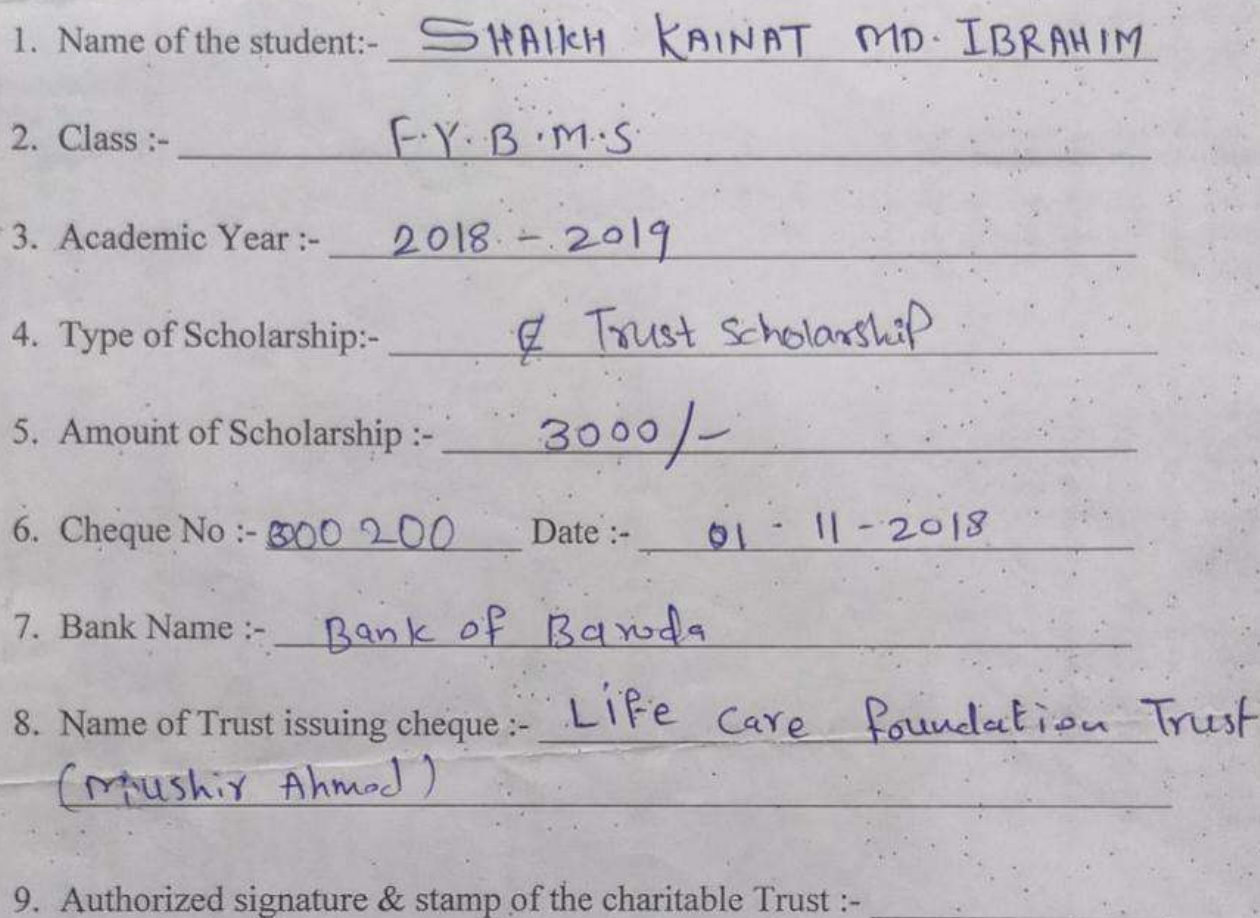 1. Name of the student:- SHAIKH KAINAT MD. IBRAHIM
2. Class :- F.Y.B.M.S
3. Academic Year :- 2018 - 2019
4. Type of Scholarship:- Trust Scholarship
5. Amount of Scholarship :- 3000/-
6. Cheque No :- 000200 Date :- 01 - 11 - 2018
7. Bank Name :- Bank of Baroda
8. Name of Trust issuing cheque :- Life care foundation Trust
(Mushir Ahmad)
9. Authorized signature & stamp of the charitable Trust :-